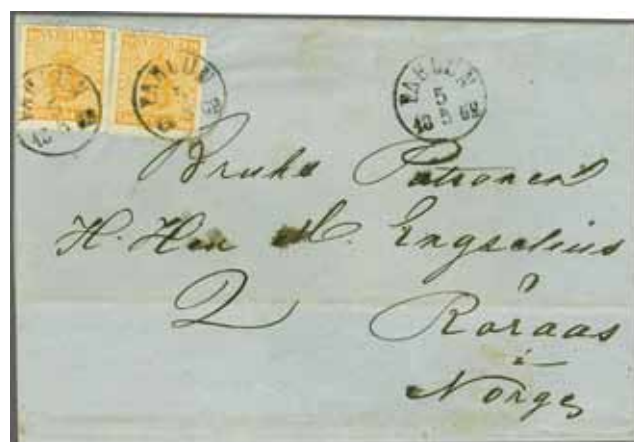 FAHLUN
5
18 5 69
Bruks Patronen
H. Herr M. Engzelius
2 Röraas
i
Norge